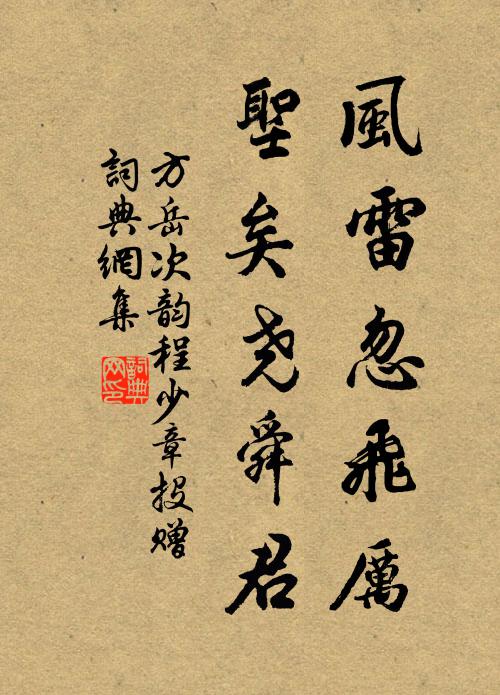 風雷忽飛厲
聖矣尧舜君
方岳次韵程少章投赠
詞典網集
詞典网印